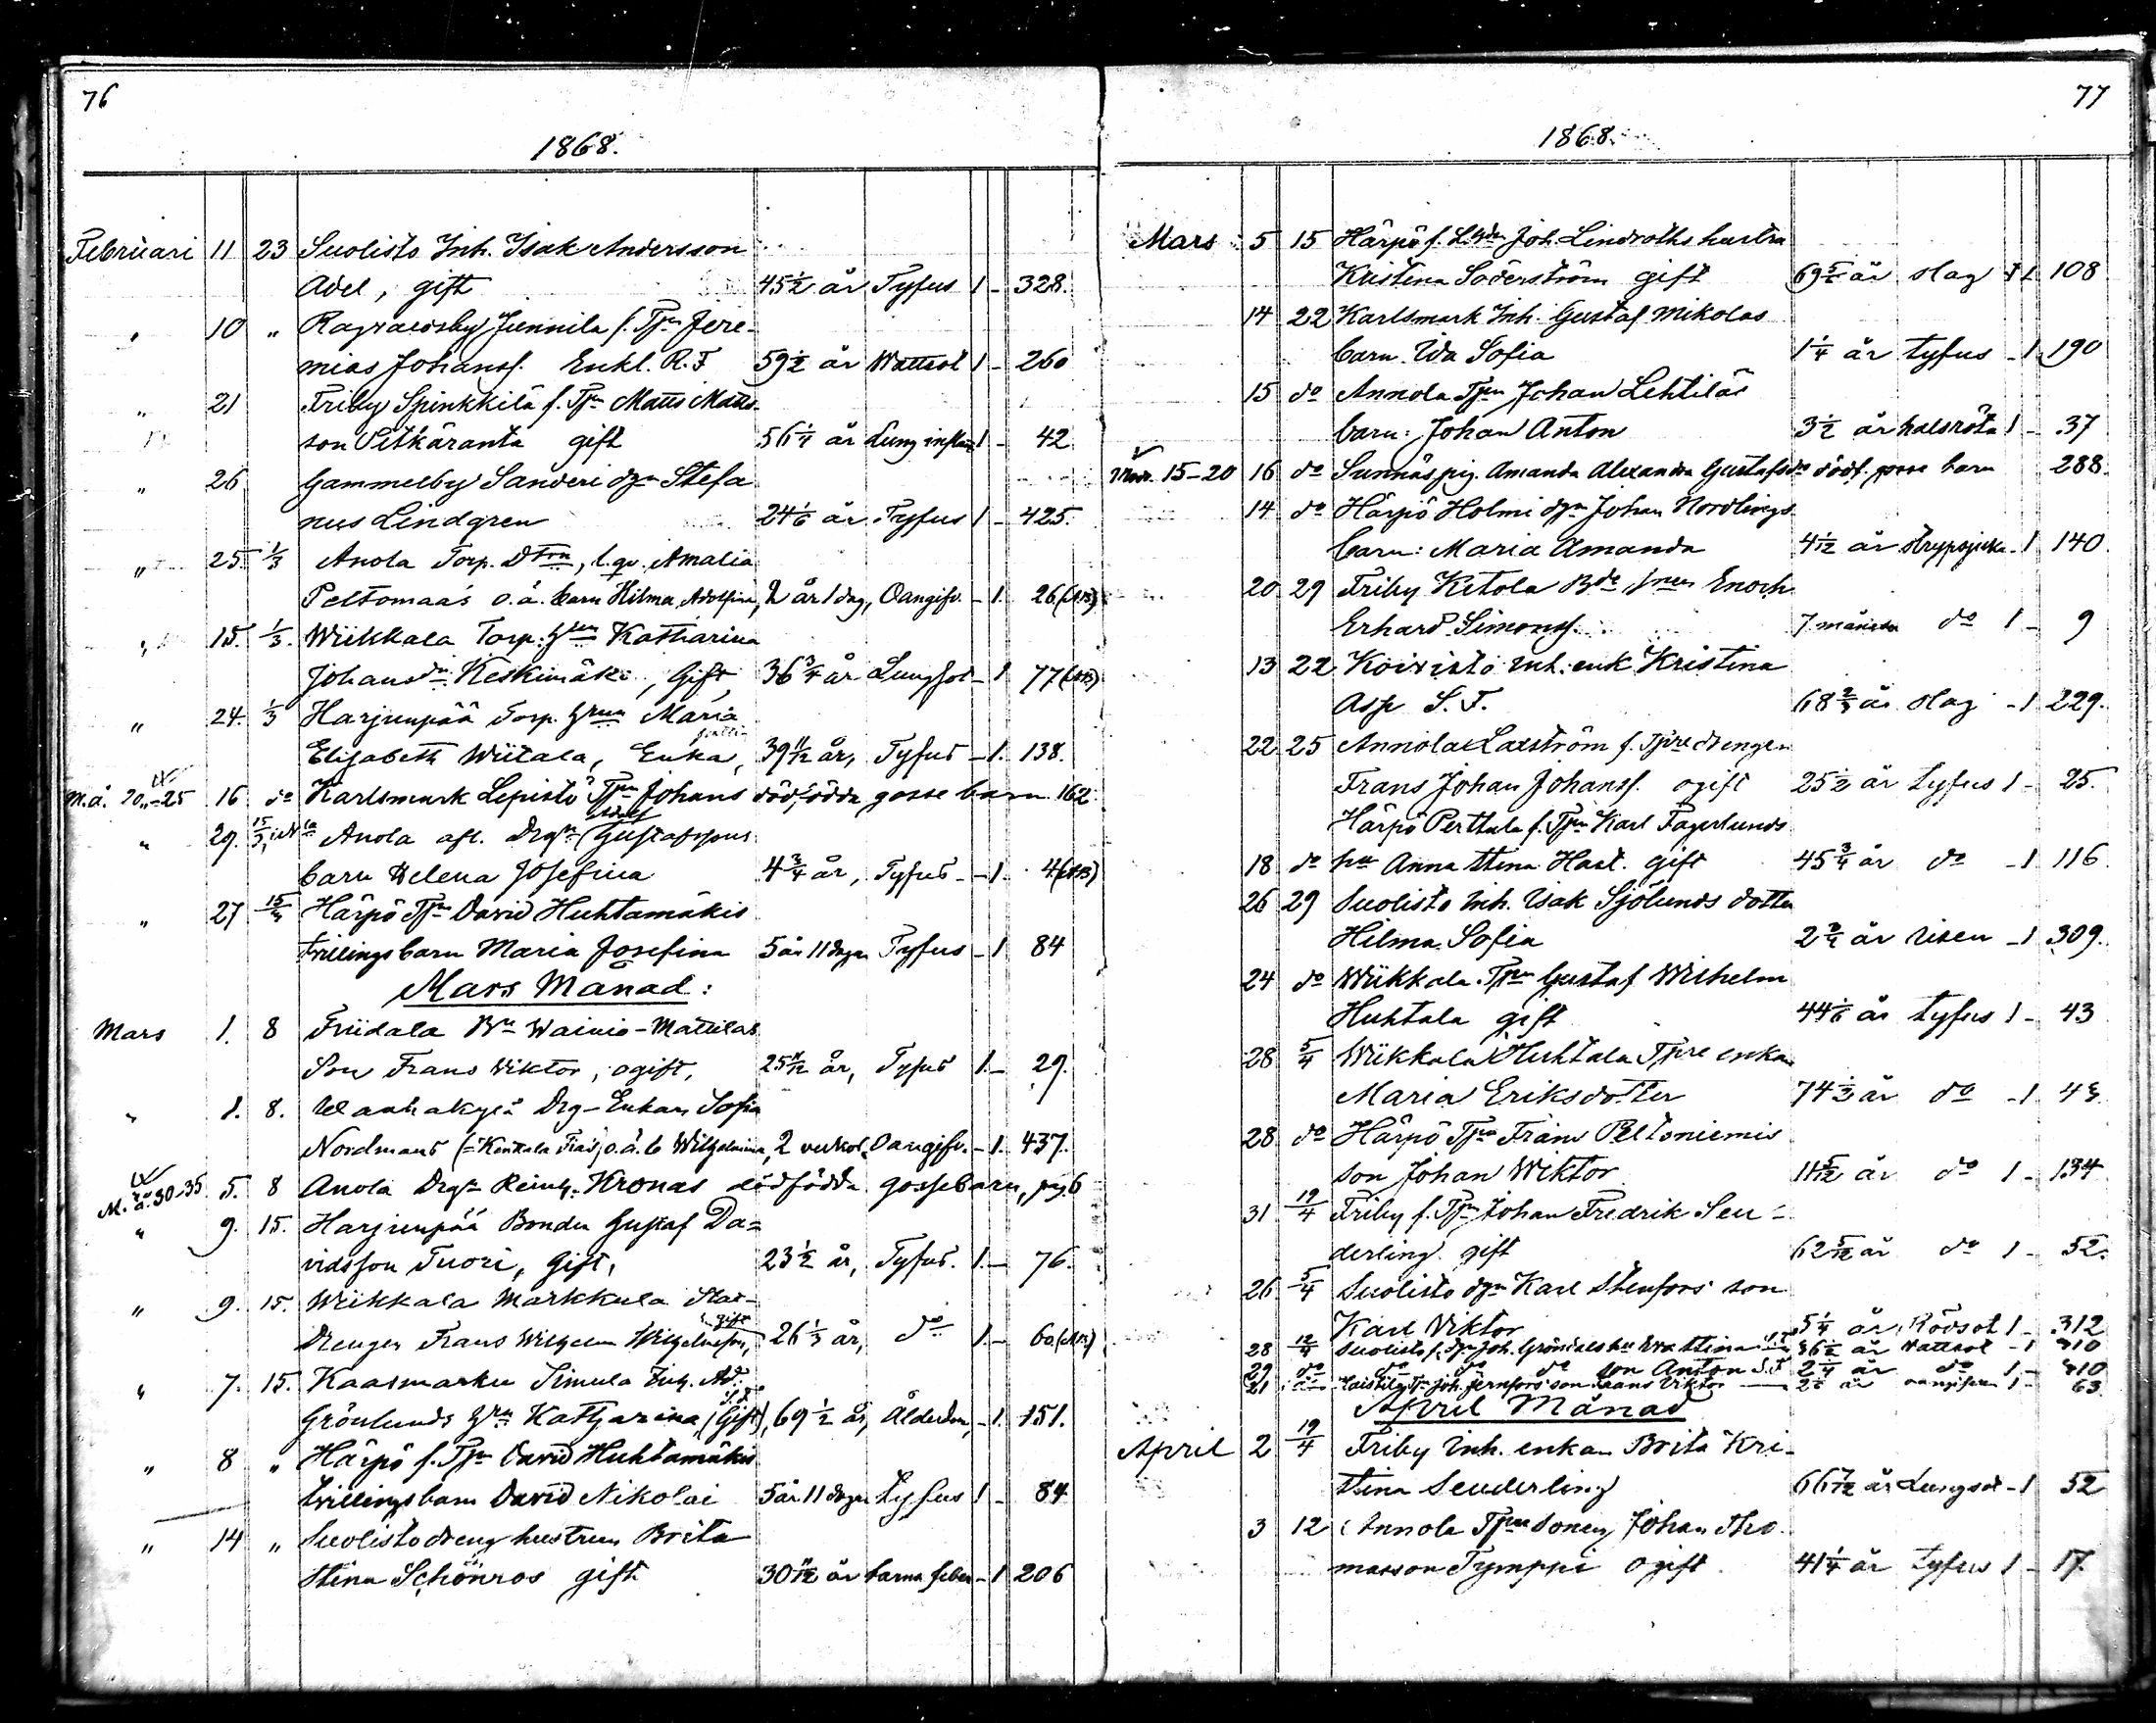 76
1868.
Februari 11 23 Suolisto Inh. Isak Andersson
Adel, gift 45½ år Tyfus 1 - 328.
" 10 " Ragvaldsby Junnila f. Tpn Jere-
mias Johanss. Enkl. R. F 59½ år Wattsot 1 - 260
" 21 Friby Spinkkilä f. Tpn Matts Matts-
son Pitkäranta gift 56¼ år Lung inflam 1 - 42
" 26 Gammelby Sanderi dgn Stefa
nus Lindgren 24 1/6 år Tyfus 1 - 425.
" 25. 1/3 Anola Torp. Dtrn, l. qv. Amalia
Peltomaas o.ä. barn Hilma Adolfina, 2 år 1 dag, Oangifv. - 1. 26
" 15. 1/3. Wiikkala Torp. Hstn Katharina
Johansdr Keskimäki, Gift, 36¾ år Lungsot - 1 77
" 24. 1/3 Harjunpää Torp. Hrun Maria
Elisabeth Wiitala, Enka, 39 11/12 år, Tyfus - 1. 138.
M.ä. 20-25 16 do Karlsmark Lepistö Tpn Johans dödfödda gosse barn 162.
" 29. 15/3 Anola afl. Drgn Adolf Gustafssons
barn Helena Josefina 4¾ år, Tyfus - 1. 4
" 27 15/3 Härpö Tpn David Huhtamäkis
tvillingsbarn Maria Josefina 5 år 11 dagar Tyfus - 1 84
Mars Månad:
Mars 1. 8 Friidala Bn Wainio-Mattilas
Son Frans Viktor, ogift, 25 11/12 år, Tyfus 1. - 29.
" 1. 8. Wanhakylä Drg-Enkan Sofia
Nordmans o.ä. b Wilhelmina, 2 veckor, Oangifv. - 1. 437.
M.ä. 30-35 5. 8 Anola Drgn Reinh. Kronas dödfödda gossebarn, pg. 6
" 9. 15. Harjunpää Bonden Gustaf Da=
vidsson Tuori, Gift, 23½ år, Tyfus. 1. - 76.
" 9. 15. Wiikkala Markkula Stat-
Drengen Frans Wilhelm Wilhelmsson, gift 26⅓ år, do 1. - 60.
" 7. 15. Kaasmarku Simula Inh. Ad.
Grönlunds Hru Katharina, (Gift), 69½ år, Ålderdom, - 1. 151.
" 8 " Härpö f. Tpn David Huhtamäkis
tvillingsbarn David Nikolai 5 år 11 dagar tyfus 1 - 84
" 14 " Suolisto dreng hustrun Brita
Stina Schönros gift 30 11/12 år barna feber - 1 206
77
1868.
Mars 5 15 Härpö f. Joh. Lindroths hustru
Kristina Söderström gift år slag 108
14 22 Karlsmark Inh. Gustaf Mikolas
barn. Ida Sofia 1¼ år tyfus - 1 190
15 do Annola Tpn Johan Lehtiläs
barn: Johan Anton 3½ år halsröta 1 - 37
15-20 16 do Sunnäs pig. Amanda Alexandra Gustafsdr dödf. gosse barn 288.
14 do Härpö Holmi dgn Johan Nordlings
barn: Maria Amanda 4 1/12 år strypsjuka - 1 140.
20 29 Friby Ketola Enoch
Erhard Simonss. 7 månader do 1 - 9
13 22 Koivisto Inh. enk Kristina
Asp S. F. 68⅔ år slag - 1 229.
22 25 Annola Laxström f. Tpre drengen
Frans Johan Johanss. ogift 25½ år tyfus 1 - 25.
Härpö Perttula f. Tpn Karl Fagerlunds
18 do hu Anna Stina Hast. gift 45¾ år do - 1 116.
26 29 Suolisto Inh. Isak Sjölunds dotter
Hilma Sofia 2¾ år risen - 1 309.
24 do Wiikkala Tpn Gustaf Wilhelm
Huhtala gift 44 1/6 år tyfus 1 - 43
28 5/4 Wiikkala Huhtala Tpre enkan
Maria Eriksdotter 74½ år do - 1 43
28 do Härpö Tpn Frans Peltoniemis
son Johan Wiktor 11 5/12 år do 1 - 134
31 19/4 Friby f. Tpn Johan Fredrik Seu-
derling gift 62 5/12 år do 1 - 52.
26 5/4 Suolisto dgn Karl Stenfors son
Karl Viktor 5¼ år Rödsot 1 - 312
28 12/4 Suolisto f. dgn Joh. Gröndals hu Eva Stina 36½ år Wattsot - 1 310
29 do do do do son Anton S.F 2¼ år do 1 - 310
21 Joh. Jernfors son Frans Viktor år oangifven 1 - 63.
April Månad
April 2 19/4 Friby Inh. enkan Brita Kri-
stina Seuderling 66 7/12 år Lungsot - 1 52
3 12 Annola Tpre sonen Johan Tho-
masson Tymppi ogift 41¼ år tyfus 1 - 17.